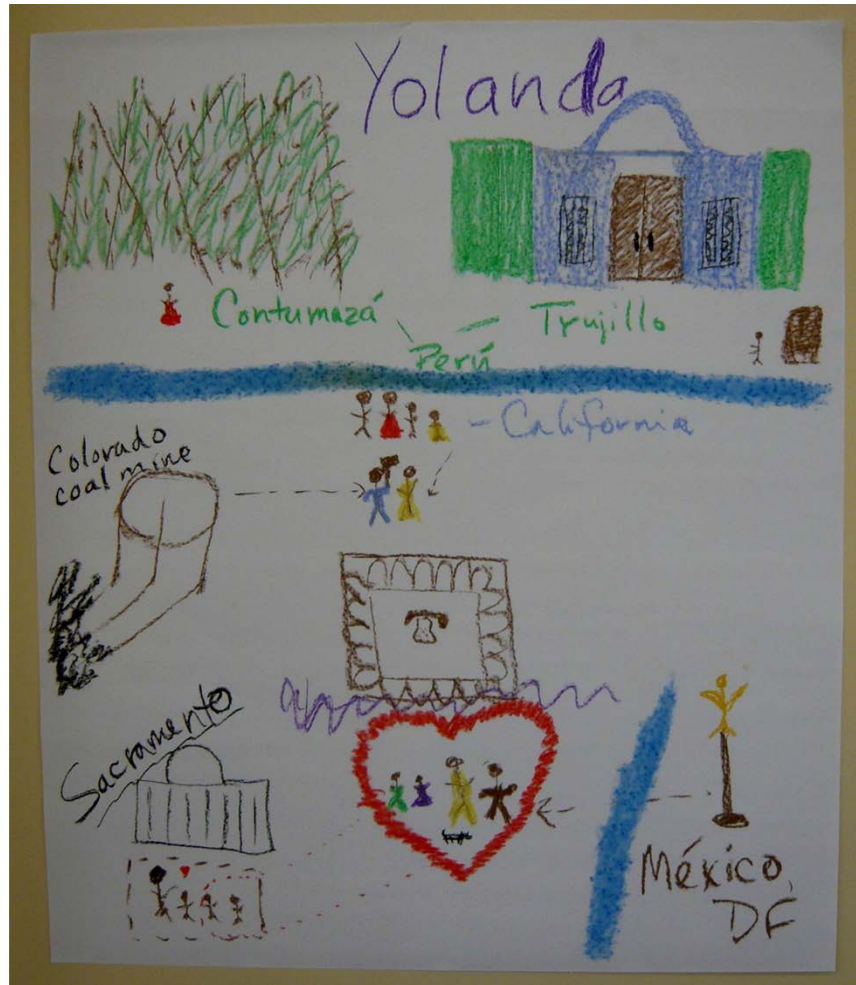 Yolanda
Contumazá
Trujillo
Perú
California
Colorado
coal mine
Sacramento
México,
DF